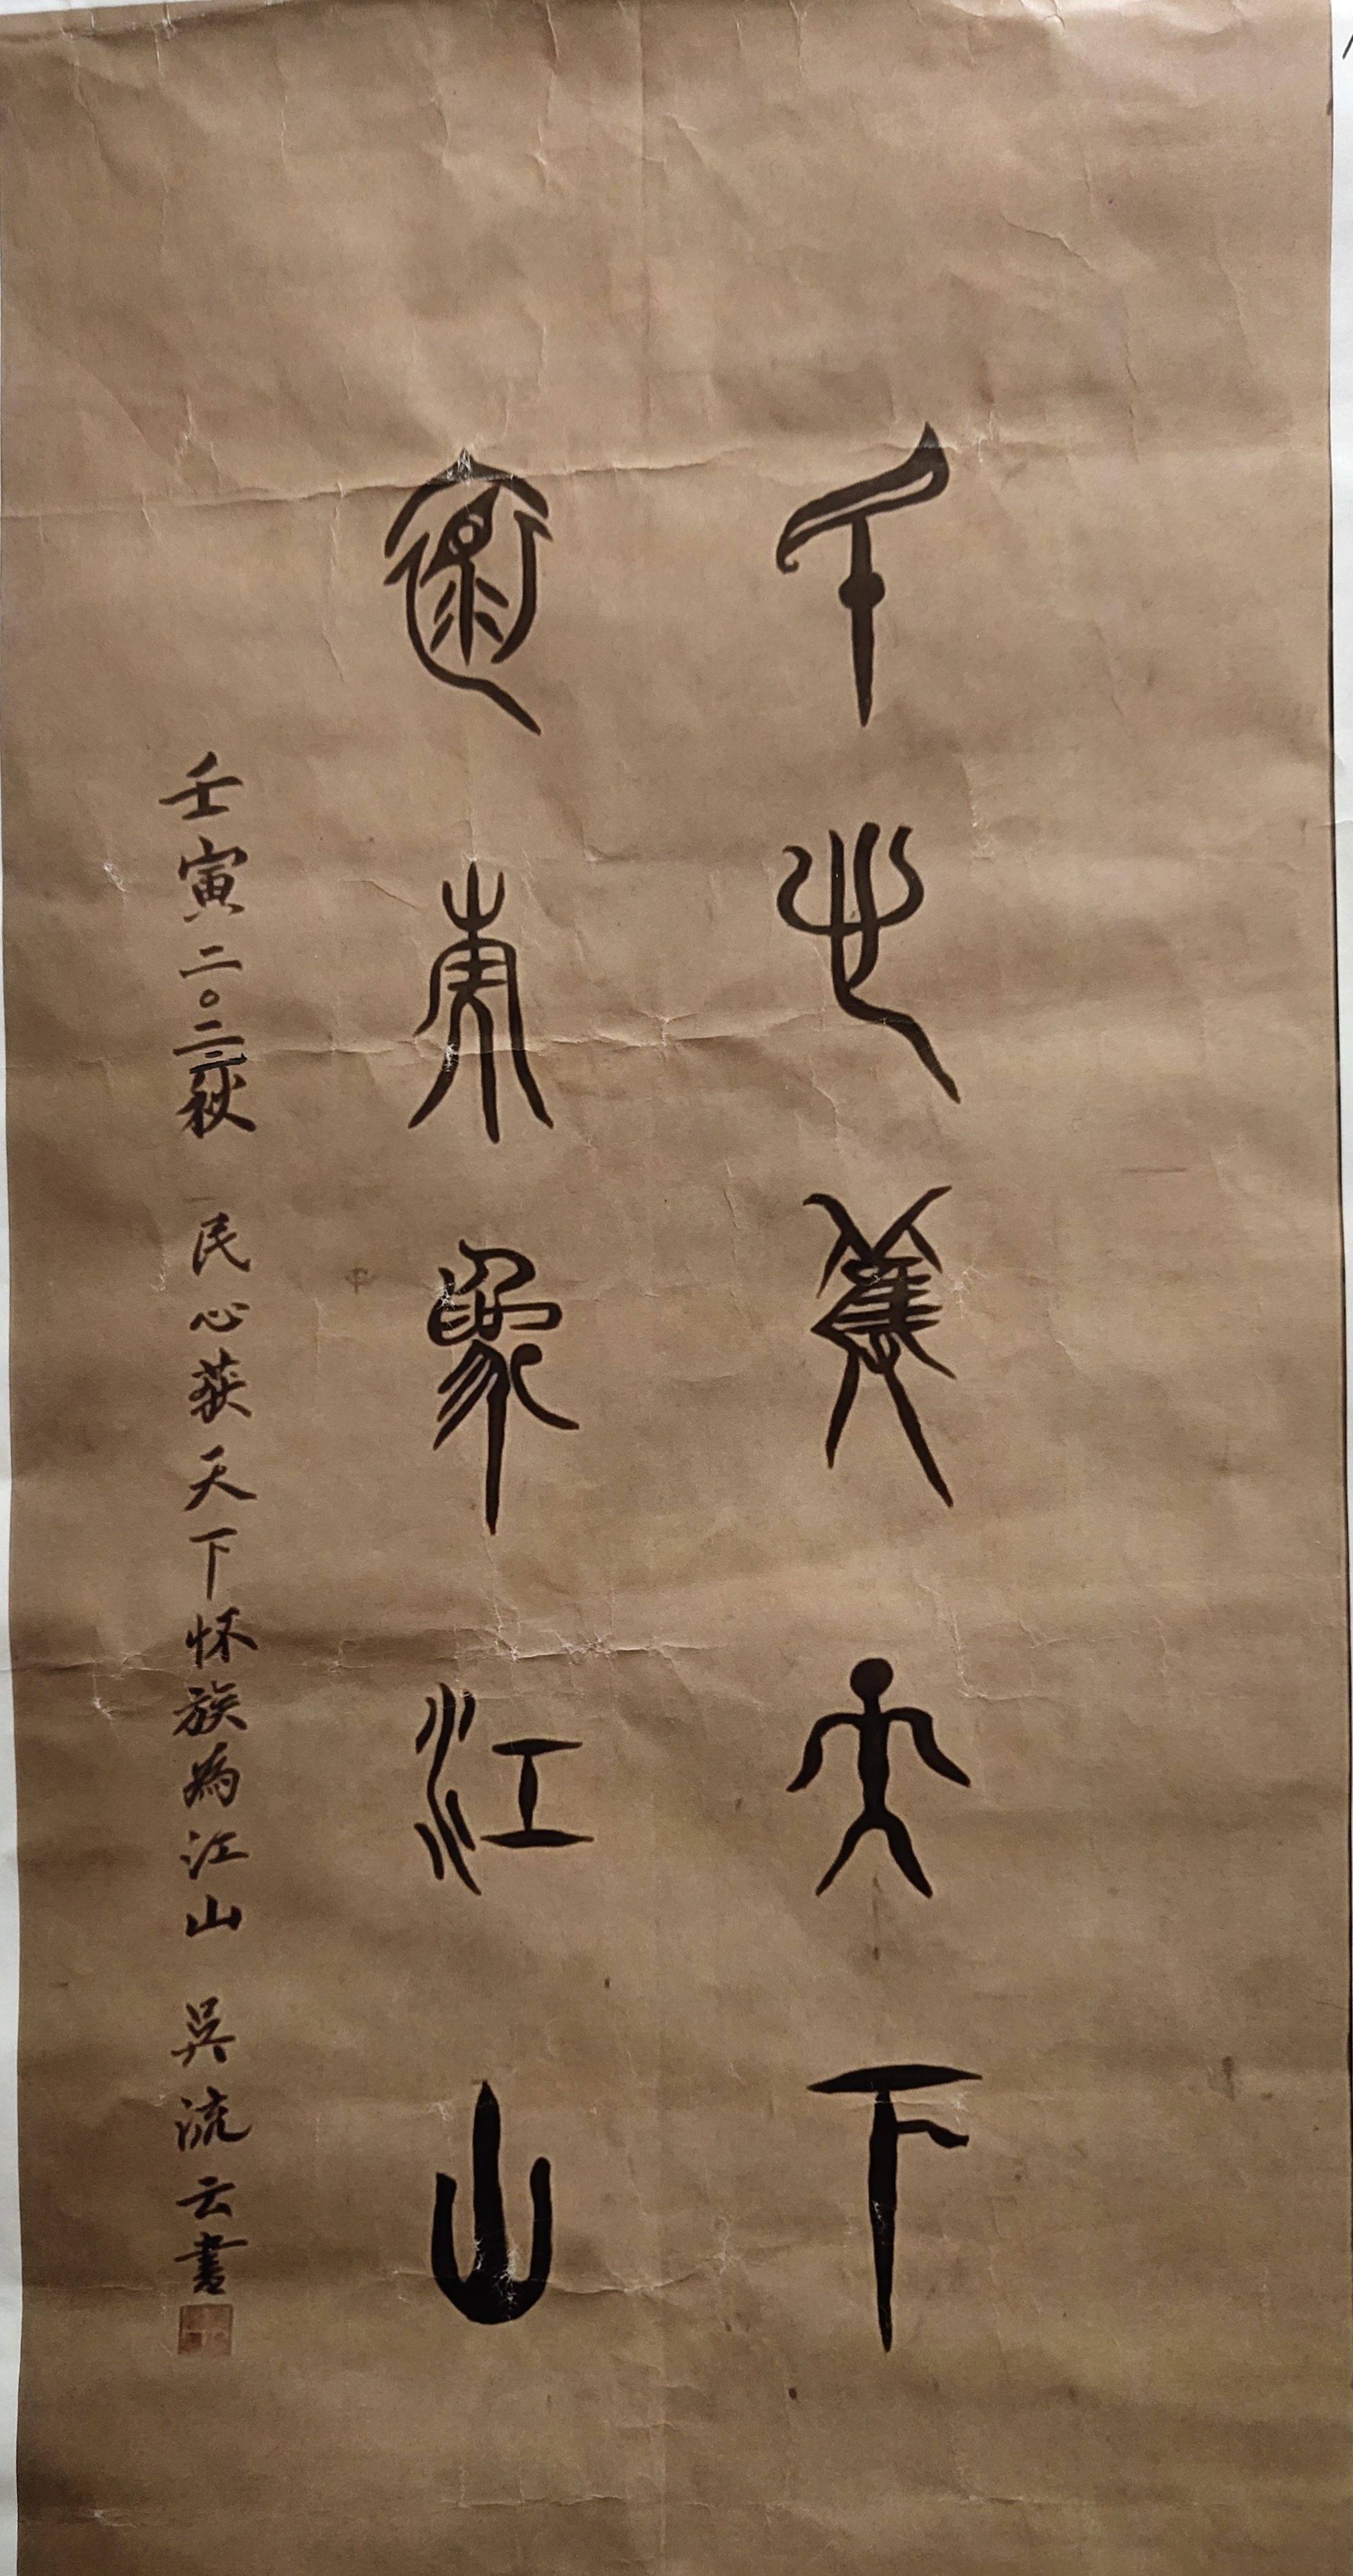 民心获天下
怀族为江山
壬寅二〇二二秋 民心获天下怀族為江山 吴流云書